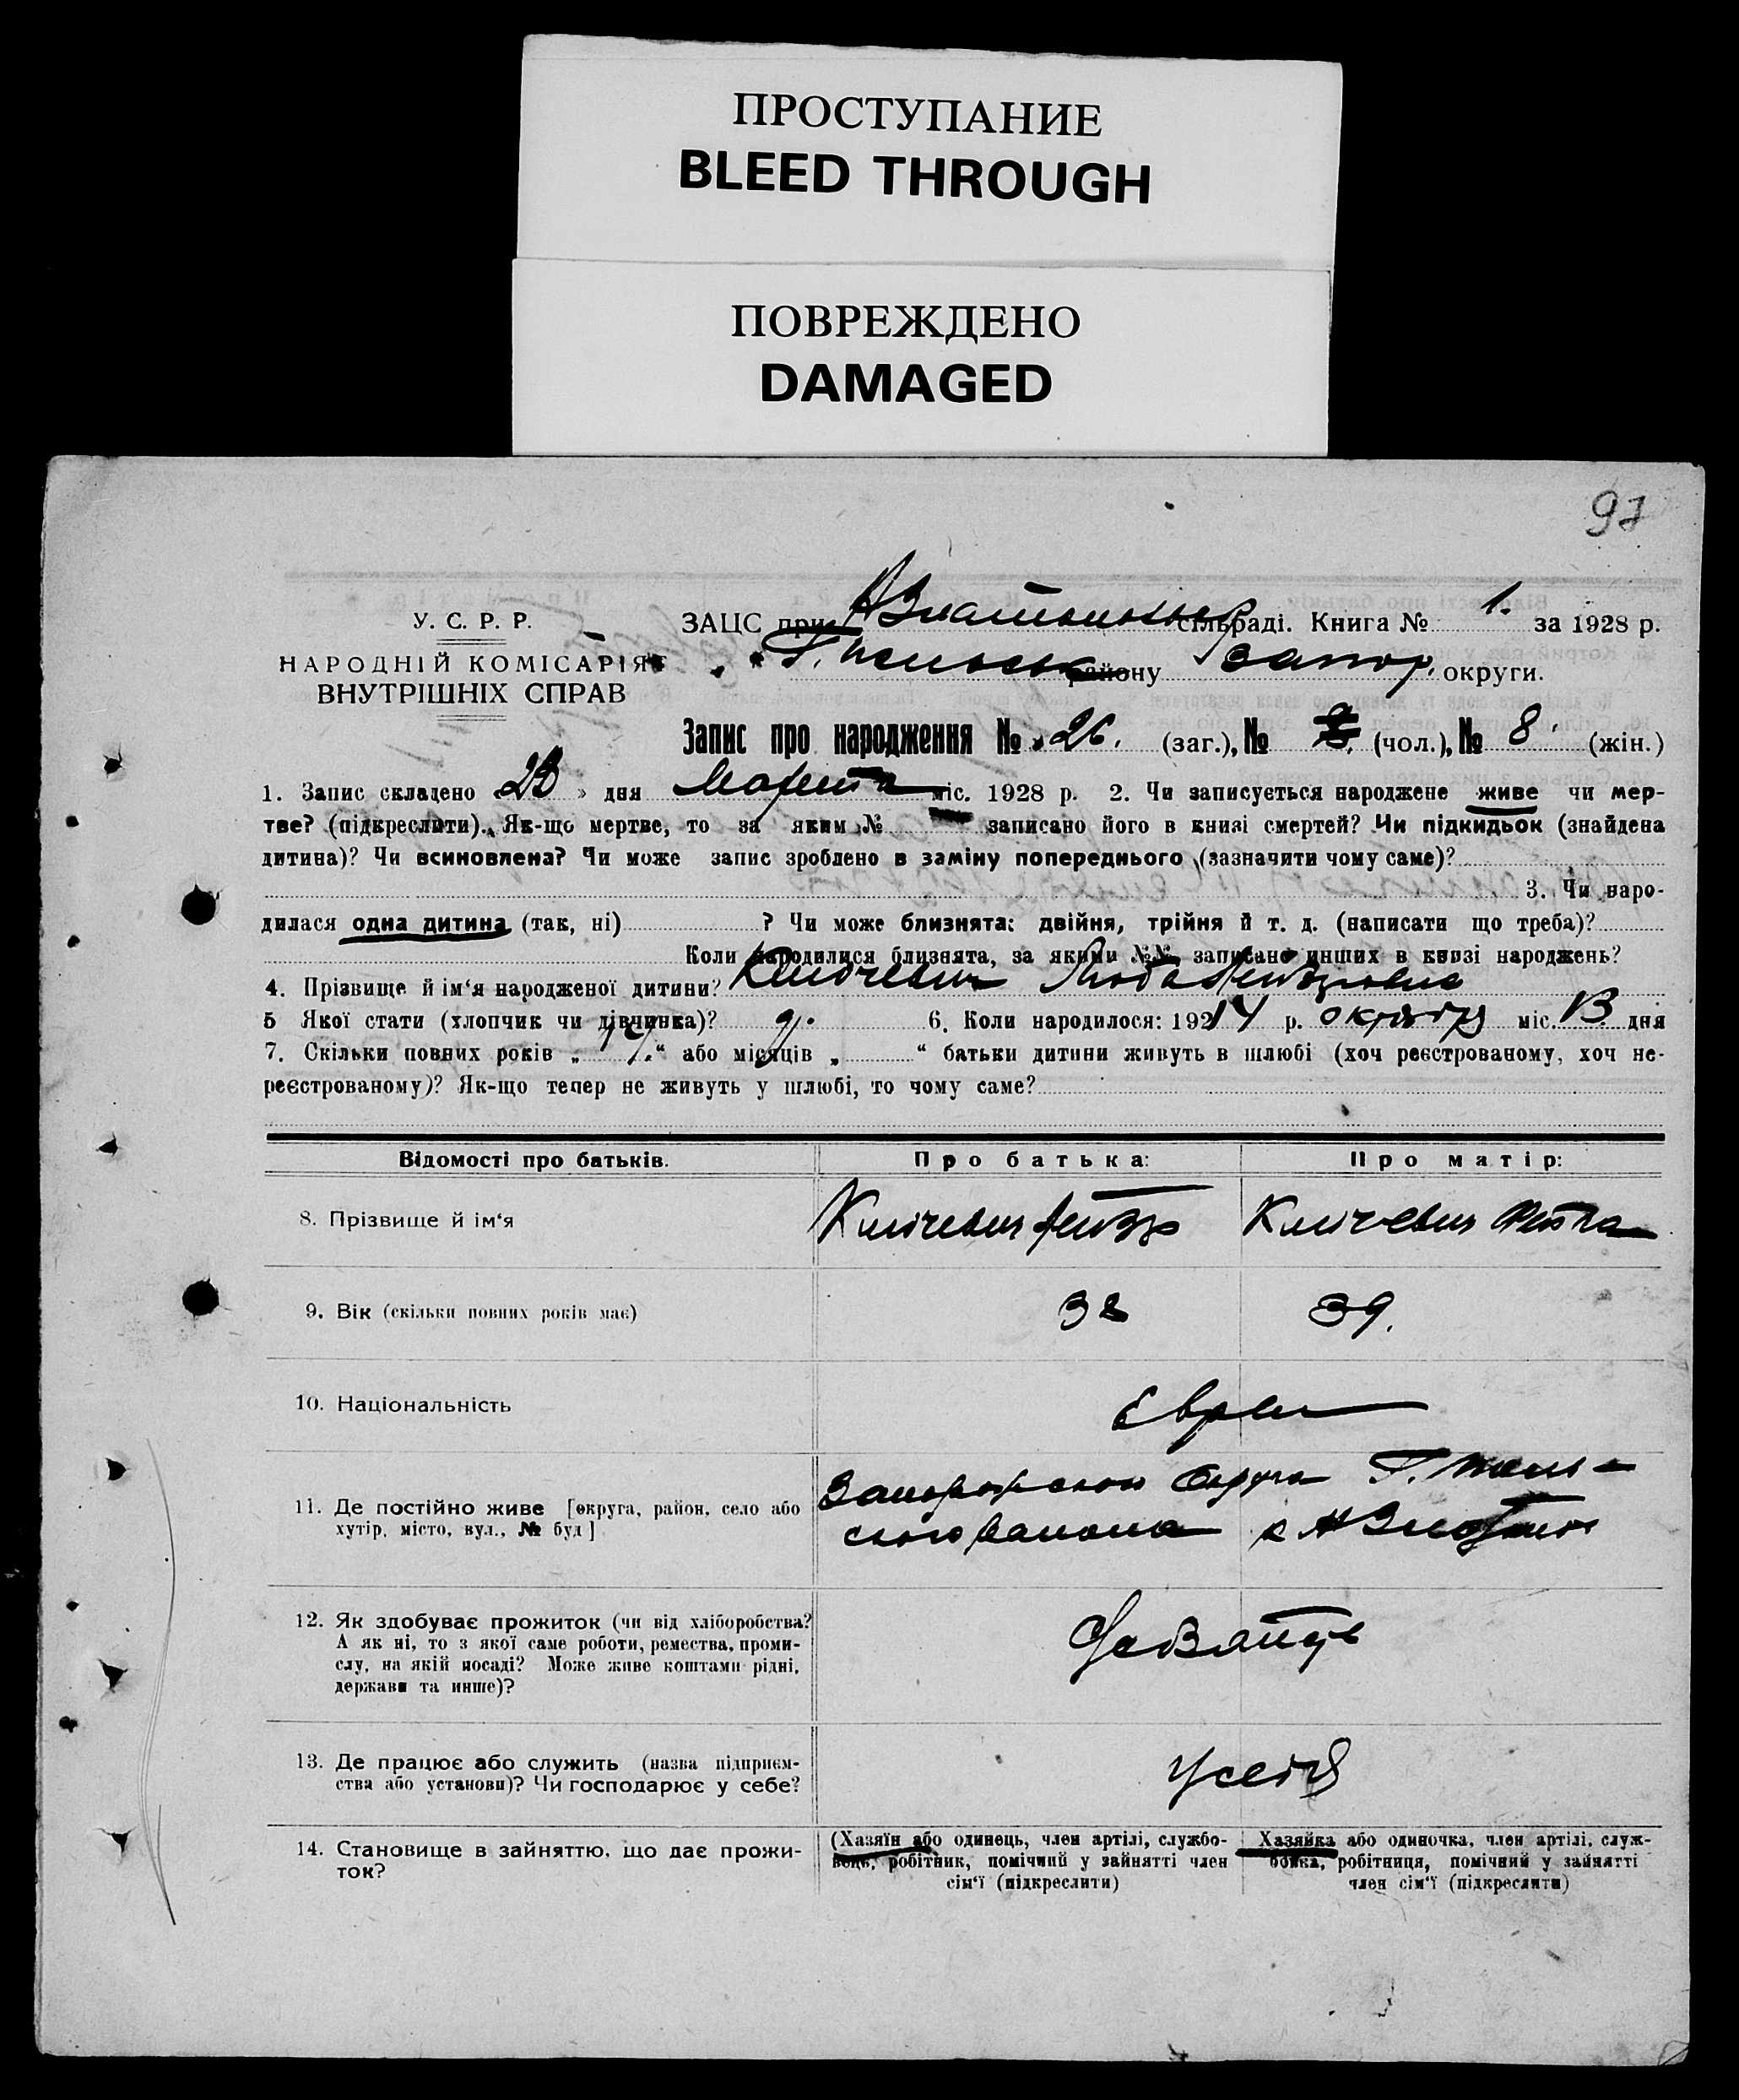 ПРОСТУПАНИЕ
BLEED THROUGH
ПОВРЕЖДЕНО
DAMAGED
97
У. С. Р. Р.
НАРОДНІЙ КОМІСАРІЯТ
ВНУТРІШНІХ СПРАВ
ЗАЦС при сільраді. Книга № 1. за 1928 р.
району Запор. округи.
Запис про народження № 26. (заг.), № (чол.), № 8 (жін.)
1. Запис складено „23" дня Марта міс. 1928 р. 2. Чи записується народжене живе чи мер-
тве? (підкреслити). Як-що мертве, то за яким № записано його в книзі смертей? Чи підкидьок (знайдена
дитина)? Чи всиновлена? Чи може запис зроблено в заміну попереднього (зазначити чому саме)?
3. Чи наро-
дилася одна дитина (так, ні) ? Чи може близнята: двійня, трійня й т. д. (написати що треба)?
Коли народилися близнята, за якими №№ записано инших в книзі народжень?
4. Прізвище й ім'я народженої дитини? Ключевич
5 Якої стати (хлопчик чи дівчинка)? 6. Коли народилося: 1914 р. октября міс. 13 дня
7. Скільки повних років „ " або місяців „ " батьки дитини живуть в шлюбі (хоч реєстрованому, хоч не-
реєстрованому)? Як-що тепер не живуть у шлюбі, то чому саме?
Відомості про батьків. Про батька: Про матір:
8. Прізвище й ім'я Ключевич Ключевич
9. Вік (скільки повних років має) 38 39.
10. Національність Евреи
11. Де постійно живе [округа, район, село або
хутір, місто, вул., № буд]
Запорожской Округа
12. Як здобуває прожиток (чи від хліборобства?
А як ні, то з якої саме роботи, ремества, проми-
слу, на якій посаді? Може живе коштами рідні,
держави та инше)?
13. Де працює або служить (назва підприєм-
ства або установи)? Чи господарює у себе?
У себя
14. Становище в зайняттю, що дає прожи-
ток?
(Хазяїн або одинець, член артілі, службо-
вець, робітник, помічний у зайнятті член
сім'ї (підкреслити)
Хазяйка або одиночка, член артілі, служ-
бовка, робітниця, помічний у зайнятті
член сім'ї (підкреслити)